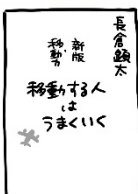 長倉顕太
新版
移動力
移動する人
は
うまくいく